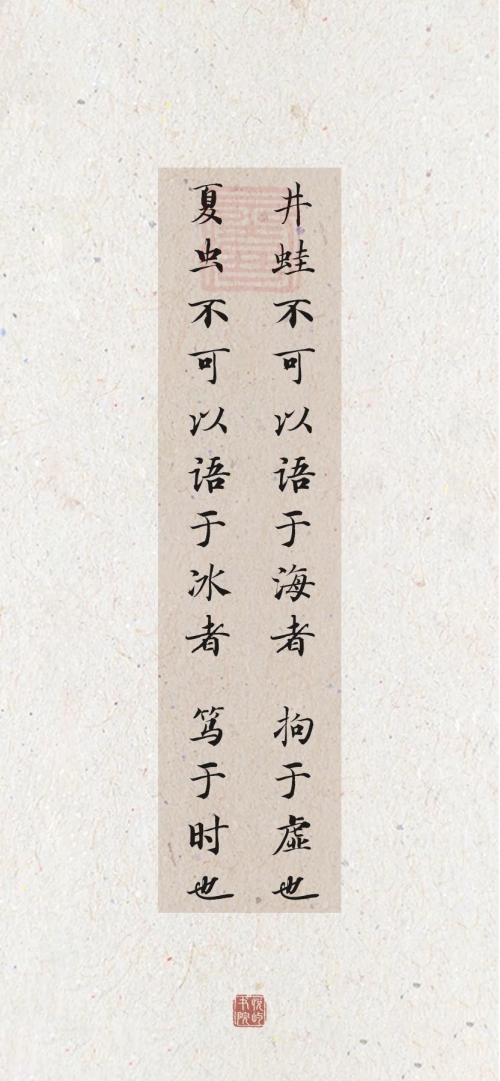 井蛙不可以语于海者 拘于虚也
夏虫不可以语于冰者 笃于时也
悦屿
书院